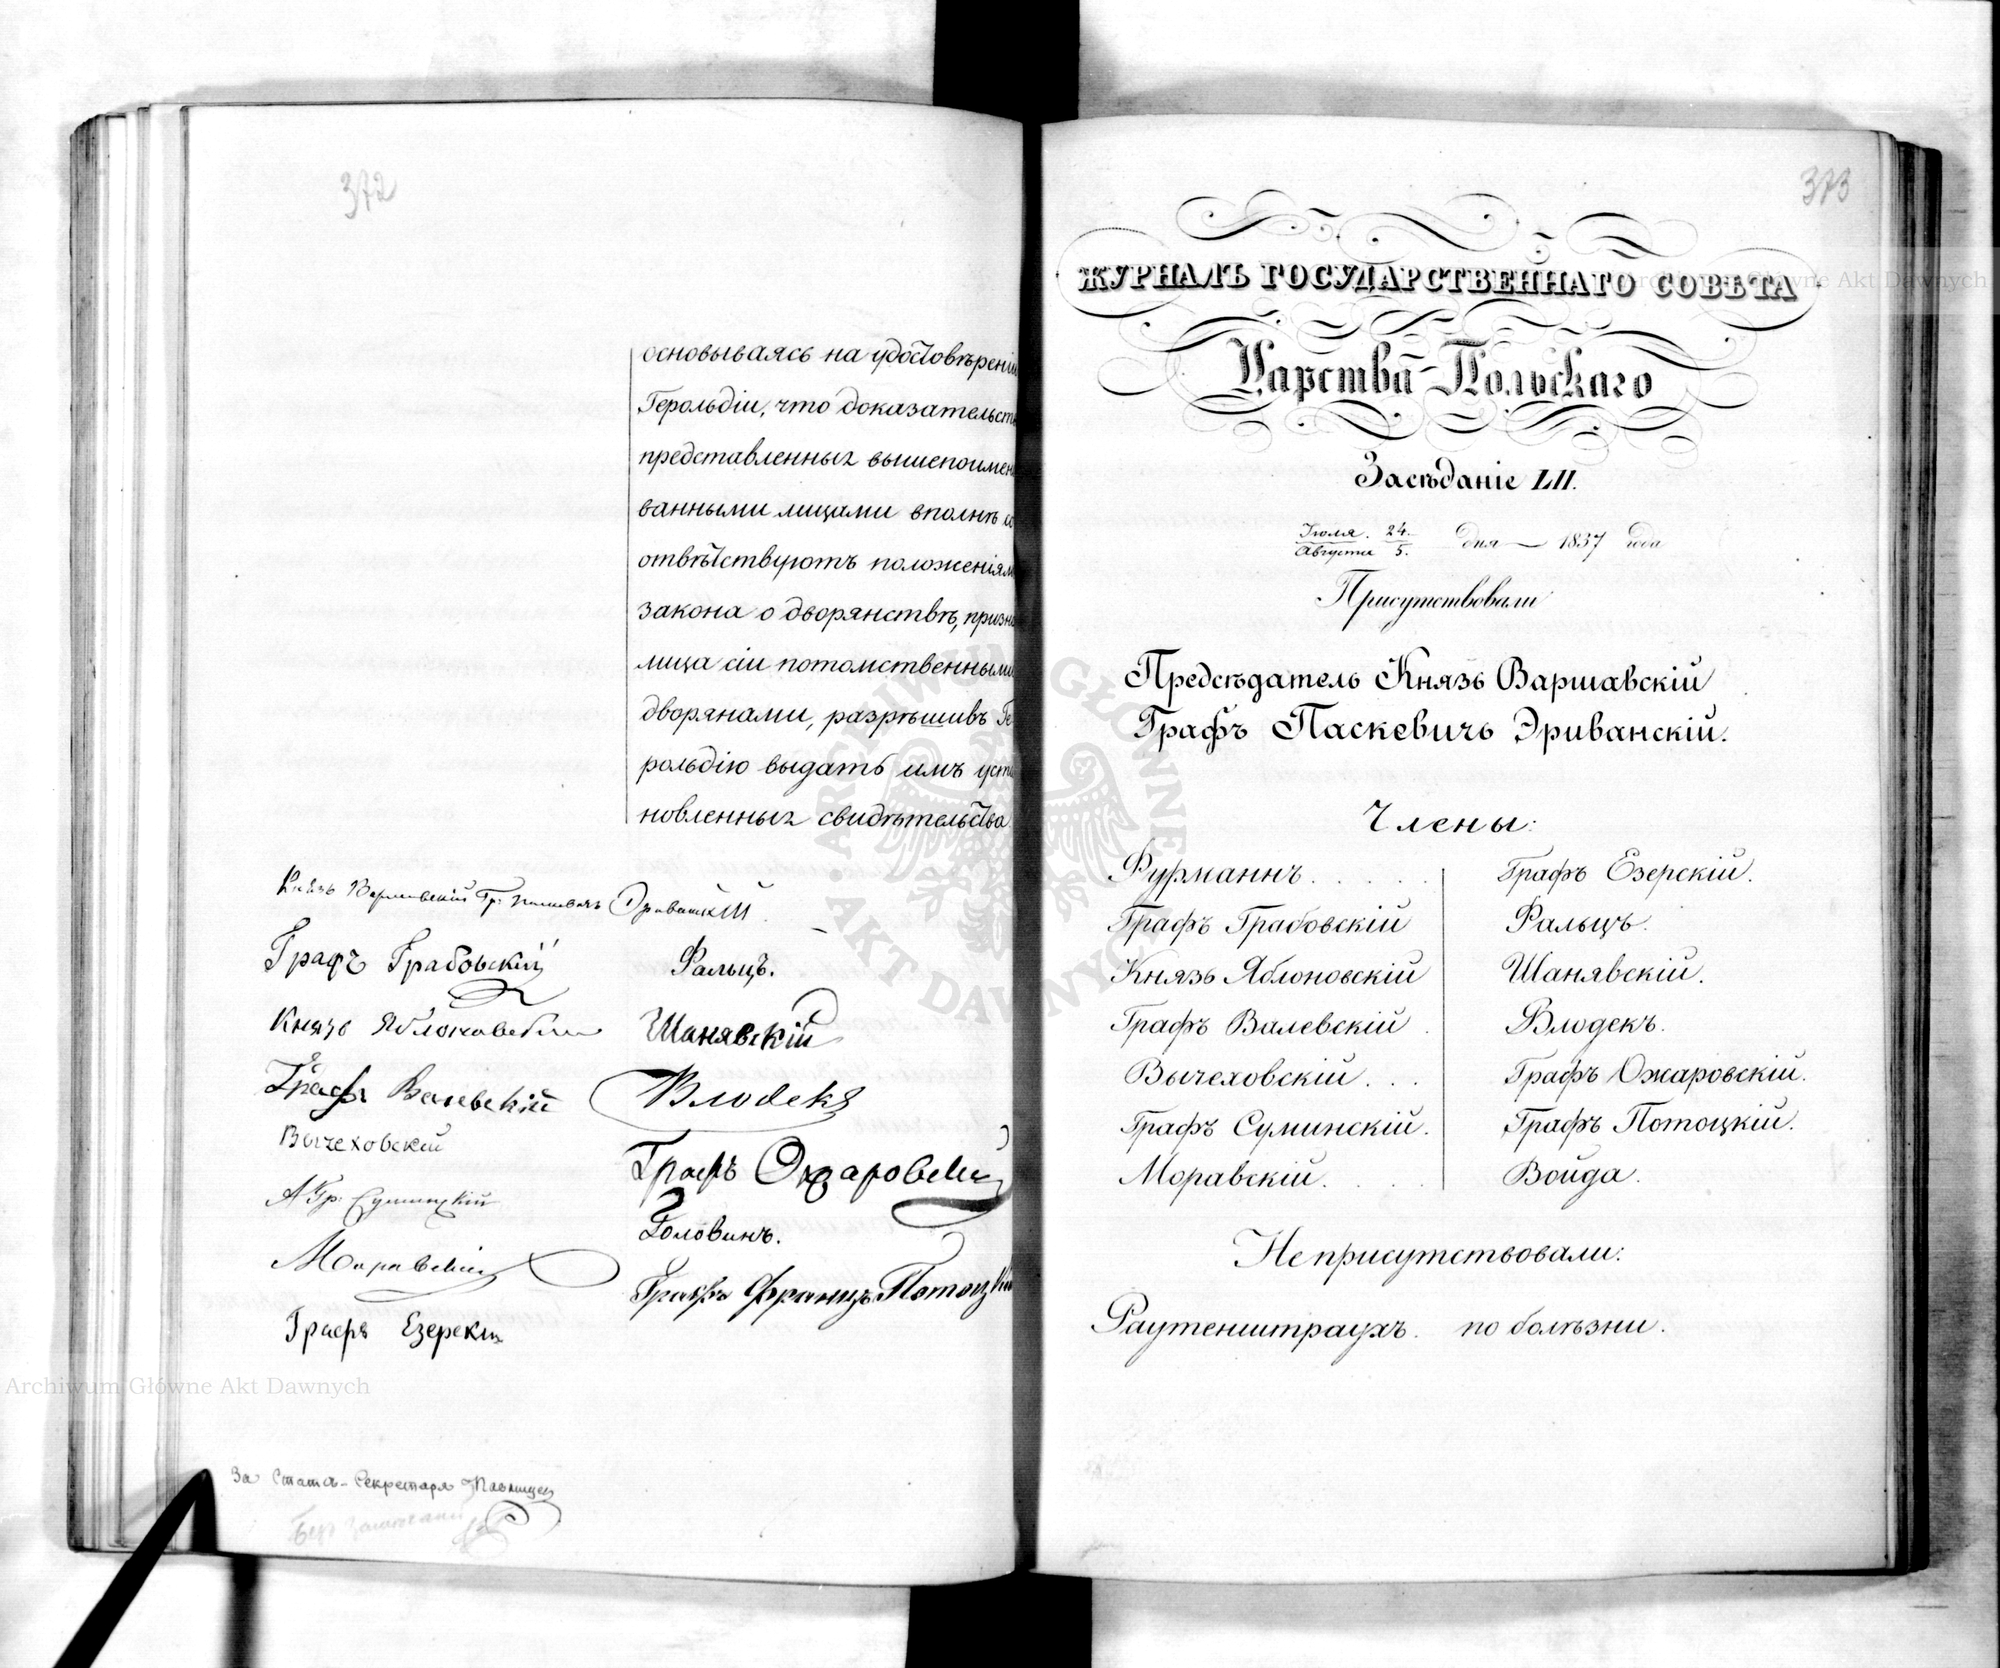 372
основываясь на удостовѣренiи
Герольдіи, что доказательст
представленныя вышепоимен
ванными лицами вполнѣ со
отвѣтствуютъ положеніям
закона о дворянствѣ, призн
лица сіи потомственными
дворянами, разрѣшивъ Ге
рольдію выдать имъ уста
новленныя свидѣтельства
Князь Варшавскій Гр: Паскевичь Эриванскій
Графъ Грабовскій
Князь Яблоновскій
Графъ Валевскій
Вычеховскій
А Гр:
Моравскій
Графъ Езерскій
Фальцъ.
Шанявскій
Влодекъ
Графъ Ожаровскій
Головинъ.
Графъ Францъ Потоцкій
За Статсъ-Секретаря
373
ЖУРНАЛЪ ГОСУДАРСТВЕННАГО СОВѢТА
Царства Польскаго
Засѣданіе LII.
Іюля 24.
Августа 5. дня 1837 года
Присутствовали
Предсѣдатель Князь Варшавскій
Графъ Паскевичь Эриванскій.
Члены:
Фурманнъ . . . . .
Графъ Грабовскій
Князь Яблоновскій
Графъ Валевскій .
Вычеховскій . . .
Графъ Суминскій.
Моравскій. . . .
Графъ Езерскій.
Фальцъ.
Шанявскій.
Влодекъ.
Графъ Ожаровскій.
Графъ Потоцкій.
Войда.
Не присутствовали:
Раутенштраухъ. по болѣзни.
Archiwum Główne Akt Dawnych
Archiwum Główne Akt Dawnych
ARCHIWUM GŁÓWNE AKT DAWNYCH